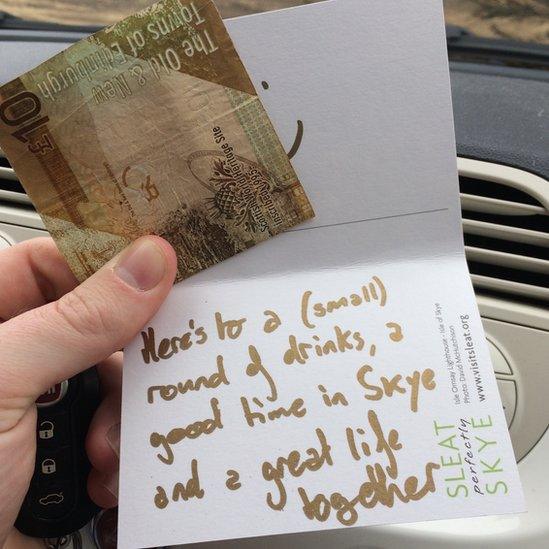 The Old & New
Towns of Edinburgh
£10
World Heritage Site
Here's to a (small)
round of drinks, a
good time in Skye
and a great life
together
Isle Ornsay Lighthouse - Isle of Skye
Photo: David McHutchison
www.visitsleat.org
SLEAT
perfectly
SKYE